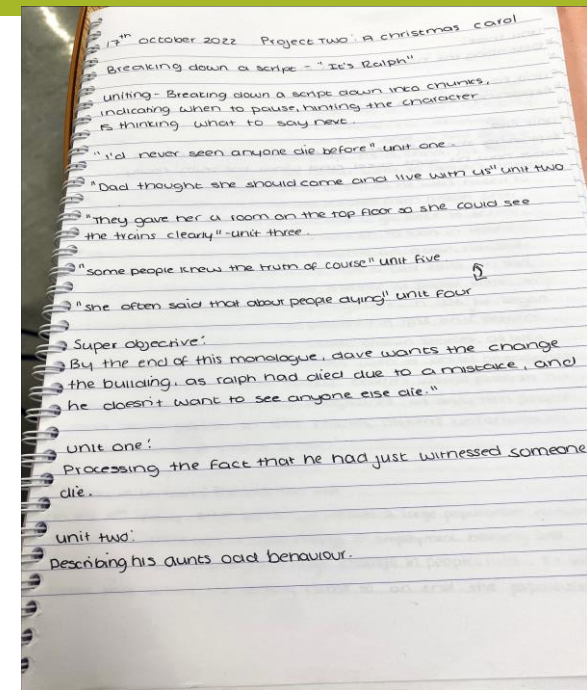 17th october 2022 Project Two: A christmas carol
Breaking down a script - "It's Ralph"
uniting - Breaking down a script down into chunks,
indicating when to pause, hinting the character
is thinking what to say next.
"I'd never seen anyone die before" unit one.
"Dad thought she should come and live with us" unit two
"They gave her a room on the top floor so she could see
the trains clearly" - unit three.
"some people knew the truth of course" unit five
"she often said that about people dying" unit four
Super objective:
By the end of this monologue, dave wants the change
the building, as ralph had died due to a mistake, and
he doesn't want to see anyone else die."
unit one:
Processing the fact that he had just witnessed someone
die.
unit two:
Describing his aunts odd behaviour.